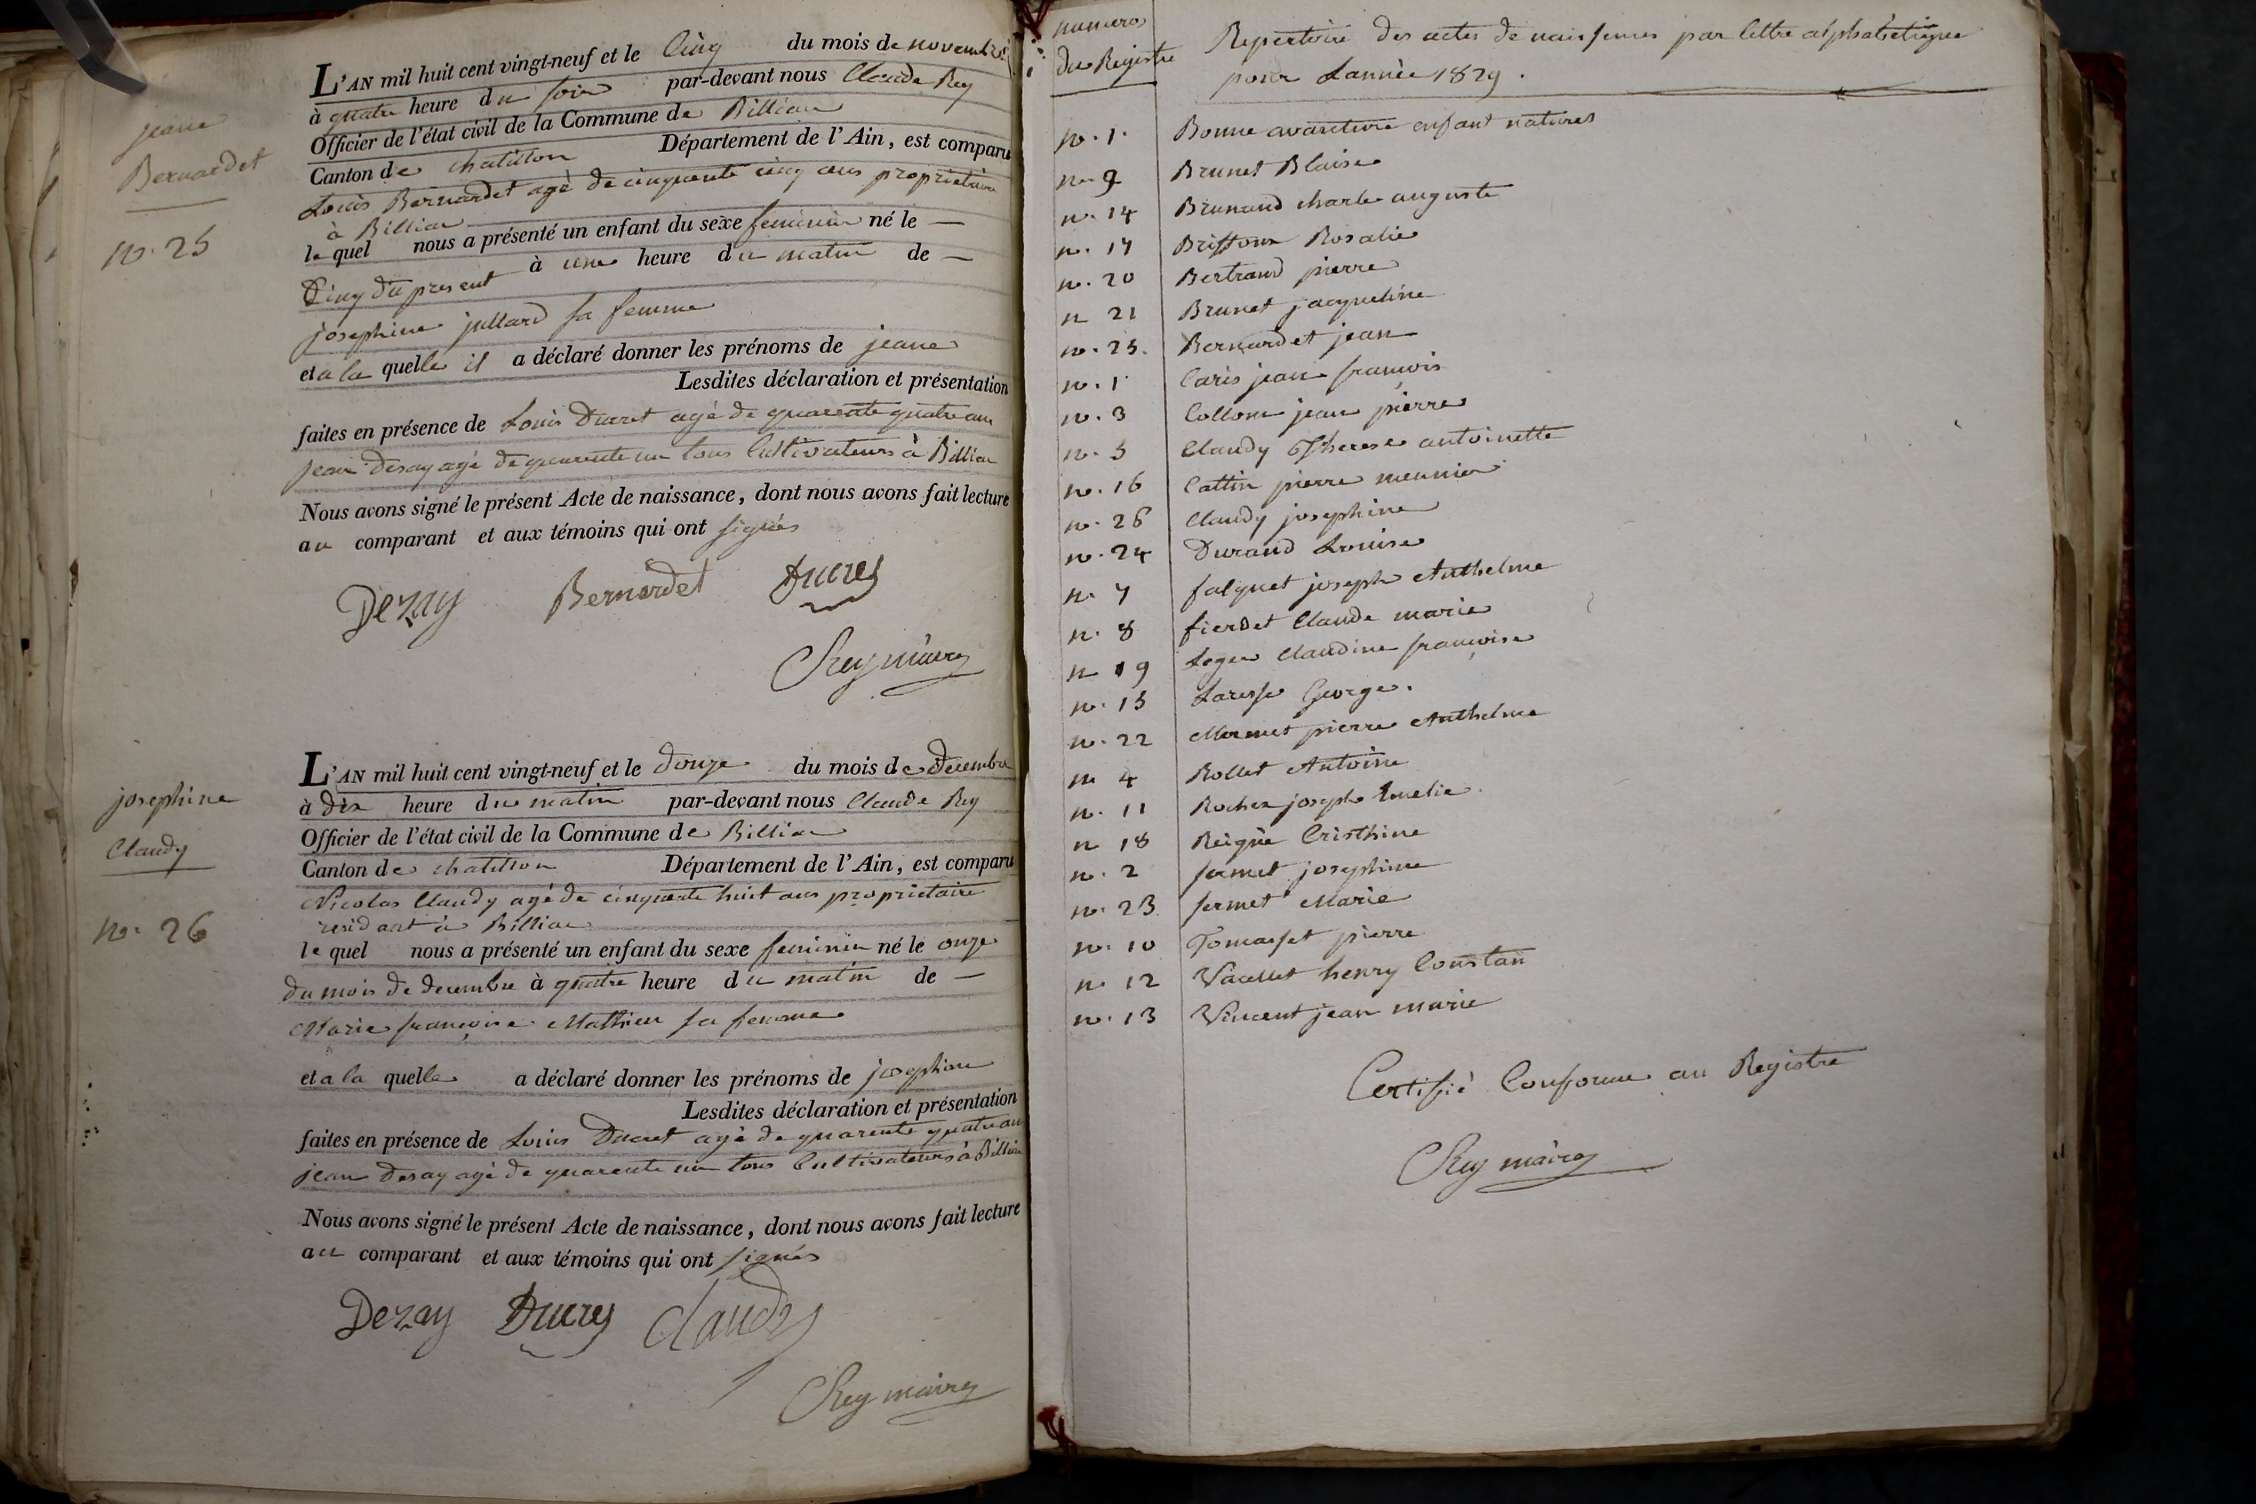 jeane
Bernardet
no. 25
L'AN mil huit cent vingt-neuf et le Cinq du mois de novembre
à quatre heure du soir par-devant nous Claude Rey
Officier de l'état civil de la Commune de Billiau
Canton de chatillon Département de l'Ain, est comparu
Louis Bernardet agé de cinquante cinq ans proprietaire
à Billiau
le quel nous a présenté un enfant du sexe feminin né le —
Cinq du present à une heure du matin de —
josephine jullard sa femme
et a la quelle il a déclaré donner les prénoms de jeane
Lesdites déclaration et présentation
faites en présence de Louis Ducret agé de quarente quatre an
jean desay agé de quarente un tous Cultivateurs à Billiau
Nous avons signé le présent Acte de naissance, dont nous avons fait lecture
au comparant et aux témoins qui ont signés
Dezay Bernardet Ducres
CRey maire
josephine
Claudy
no. 26
L'AN mil huit cent vingt-neuf et le douze du mois de decembre
à dix heure du matin par-devant nous Claude Rey
Officier de l'état civil de la Commune de Billiau
Canton de chatillon Département de l'Ain, est comparu
Nicolas Claudy agé de cinquente huit ans proprietaire
residant à Billiau
le quel nous a présenté un enfant du sexe feminin né le onze
du mois de decembre à quatre heure du matin de —
Marie françoise Mathieu sa femme
et a la quelle a déclaré donner les prénoms de josephine
Lesdites déclaration et présentation
faites en présence de Louis Ducret agé de quarente quatre an
jean desay agé de quarente un tous Cultivateurs à Billiau
Nous avons signé le présent Acte de naissance, dont nous avons fait lecture
au comparant et aux témoins qui ont signés
Dezay Ducres Claudy
CRey maire
numero
du Registre
Repertoire des actes de naissences par lettre alphabetique
pour Lannèe 1829.
no. 1. Bonne avanture enfant naturel
no. 9 Brunet Blaise
no. 14 Brunand charle auguste
no. 17 Brissoux Rosalie
no. 20 Bertrand pierre
n 21 Brunet jacqueline
no. 25. Bernardet jean
no. 1 Caris jean françois
no. 3 Collom jean pierre
no. 5 Claudy Therese antoinette
no. 16 Cattin pierre meunier
no. 26 Claudy josephine
no. 24 Durand Louise
n. 7 falquet joseph Anthelme
n. 8 fierdet Claude marie
n 19 Leger Claudine françoise
no. 15 Laresse George.
no. 22 Mermet pierre Anthelme
no 4 Rollet Antoine
n. 11 Rochex joseph Emelie
n 18 Reignè Cristhine
no. 2 sermet josephine
no. 23 sermet Marie
no. 10 Tomasset pierre
n. 12 Vacellet henry Constan
no. 13 Vincent jean marie
Certifié Conforme au Registre
CRey maire